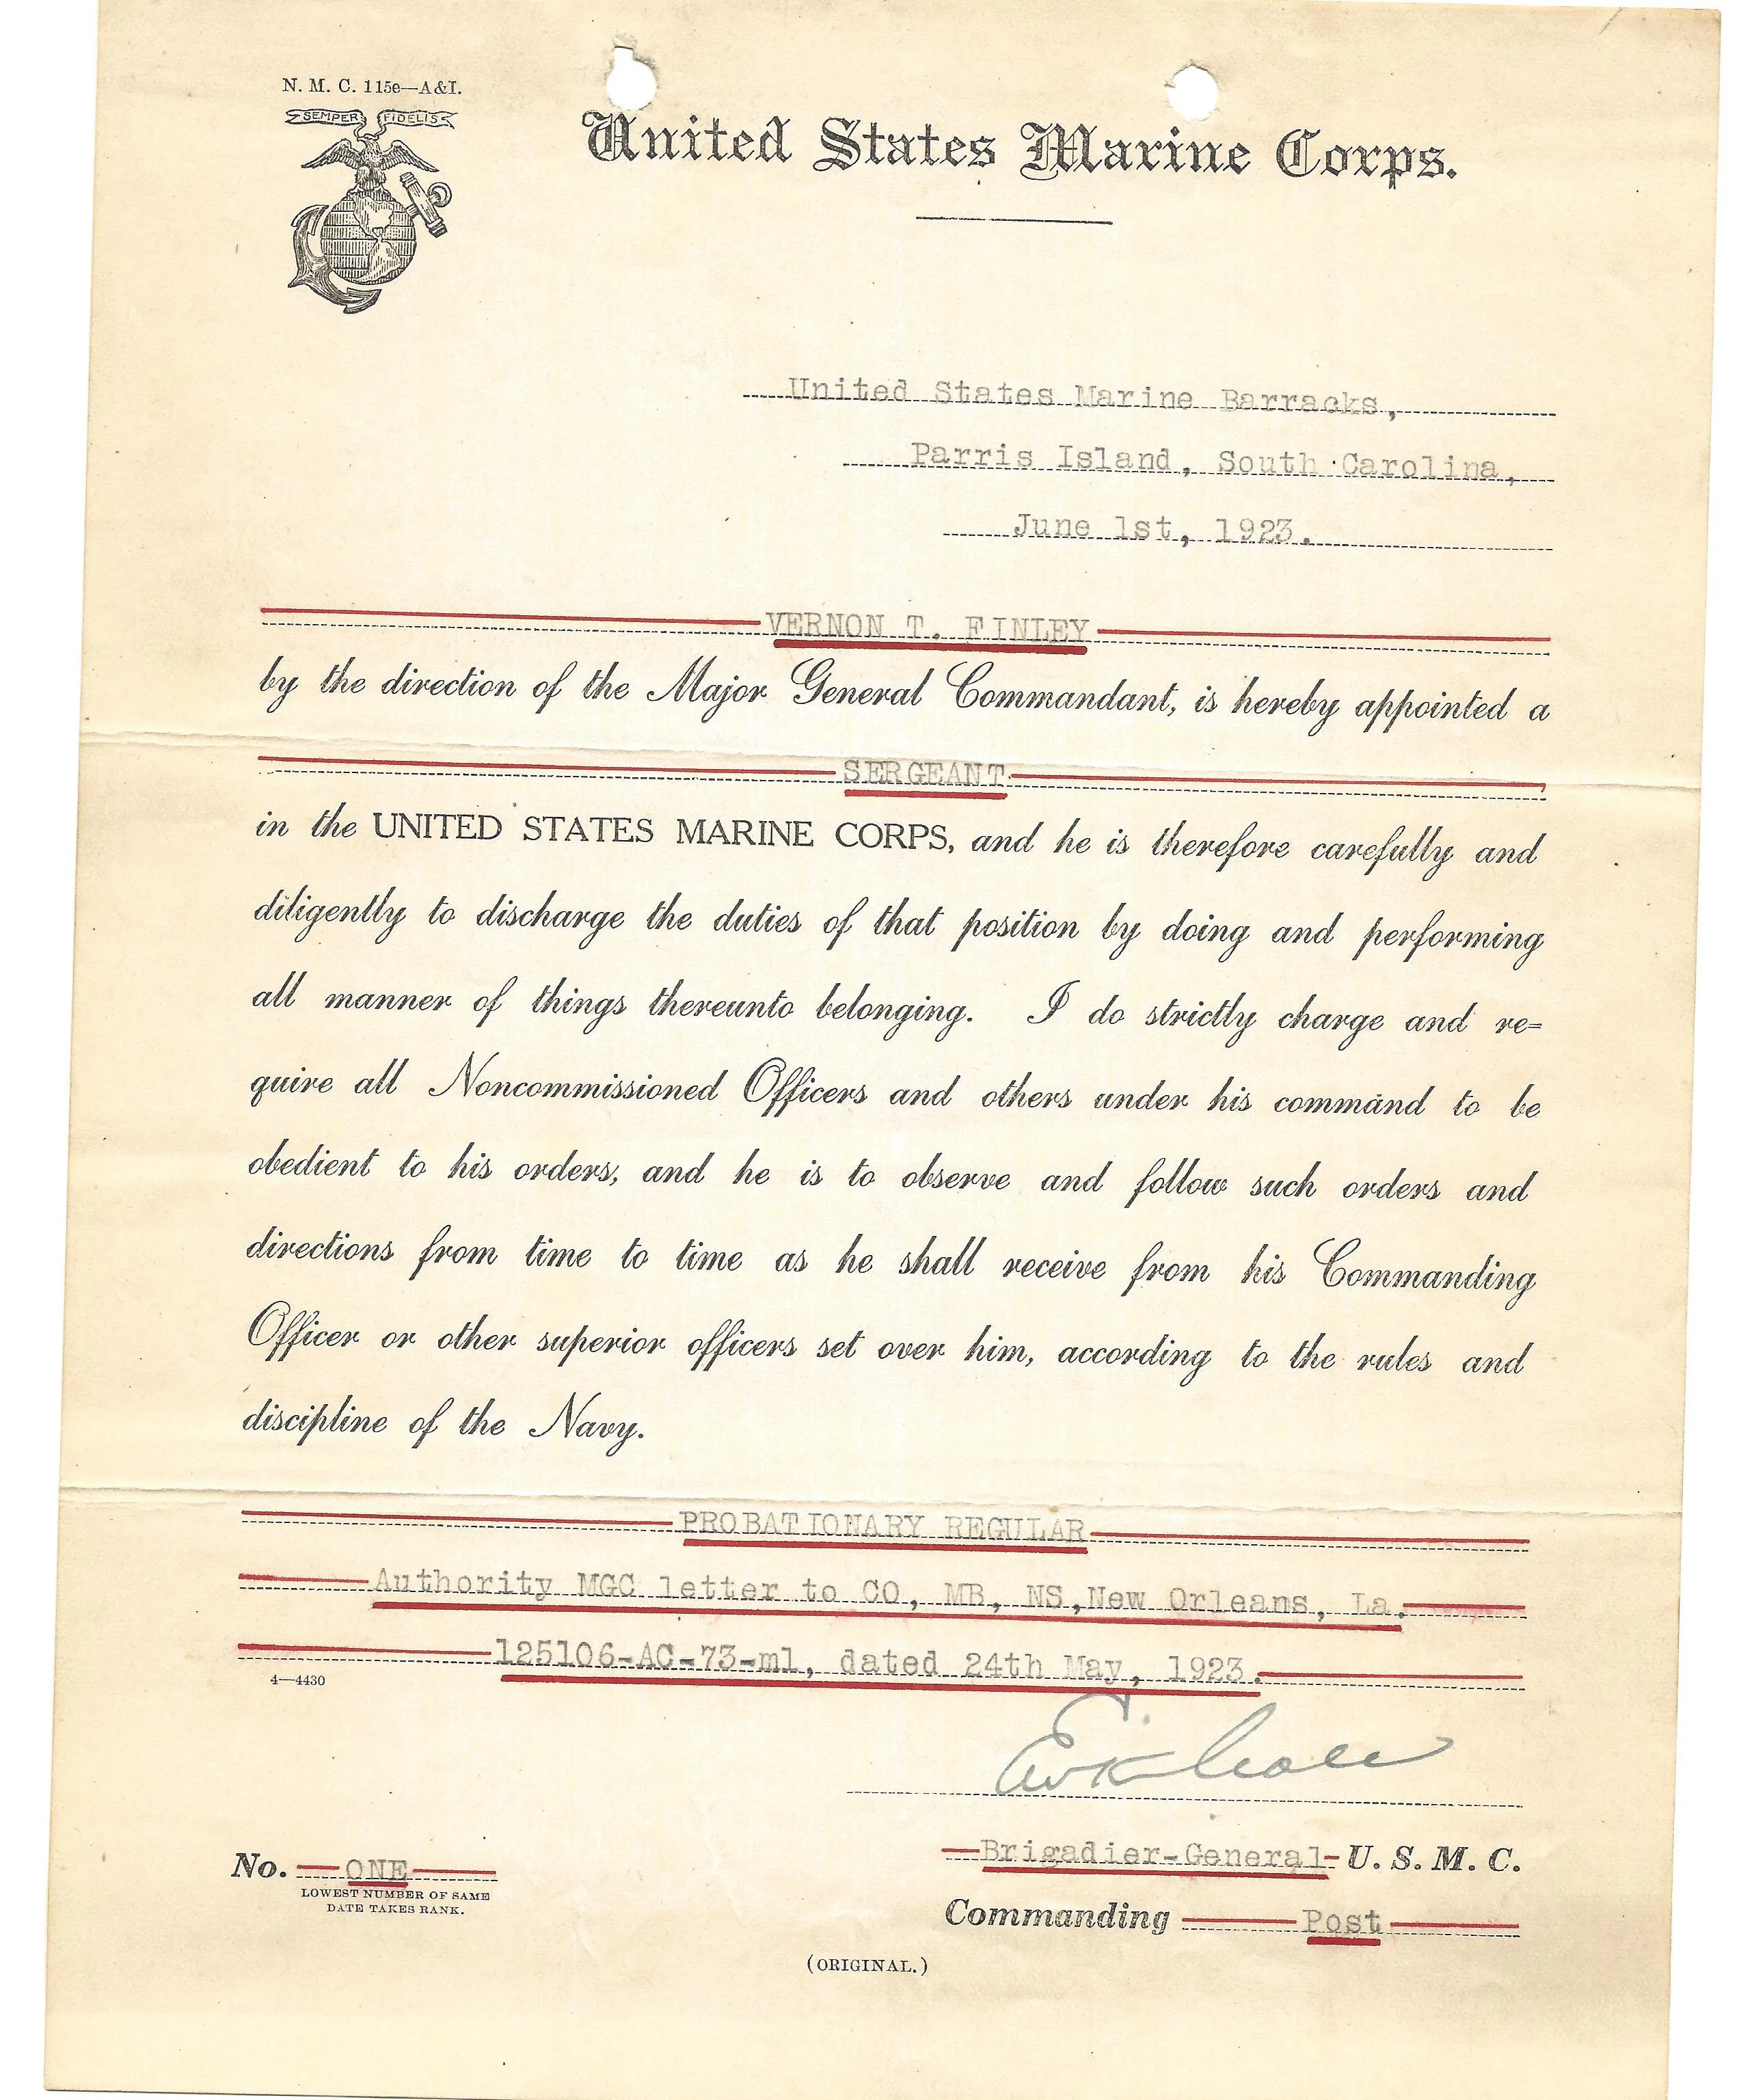 N. M. C. 115e—A&I.
SEMPER FIDELIS
United States Marine Corps.
United States Marine Barracks,
Parris Island, South Carolina,
June 1st, 1923.
VERNON T. FINLEY
by the direction of the Major General Commandant, is hereby appointed a
SERGEANT
in the UNITED STATES MARINE CORPS, and he is therefore carefully and
diligently to discharge the duties of that position by doing and performing
all manner of things thereunto belonging. I do strictly charge and re=
quire all Noncommissioned Officers and others under his command to be
obedient to his orders, and he is to observe and follow such orders and
directions from time to time as he shall receive from his Commanding
Officer or other superior officers set over him, according to the rules and
discipline of the Navy.
PROBATIONARY REGULAR
Authority MGC letter to CO, MB, NS,New Orleans, La.
125106-AC-73-ml, dated 24th May, 1923.
4—4430
Brigadier-General U. S. M. C.
No. ONE
LOWEST NUMBER OF SAME
DATE TAKES RANK.
Commanding Post
(ORIGINAL.)